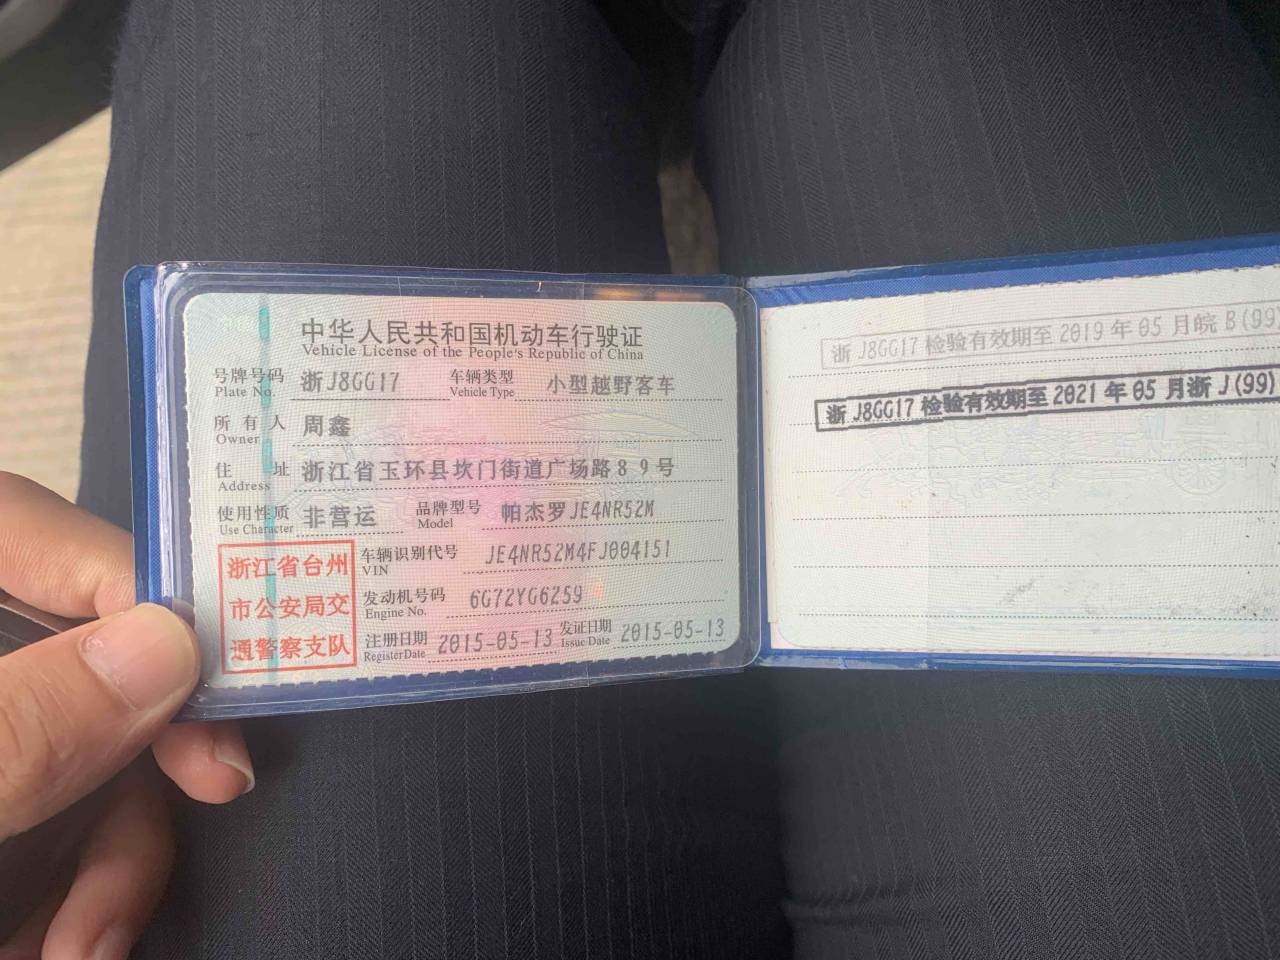 中华人民共和国机动车行驶证
Vehicle License of the People's Republic of China
号牌号码 浙J8GG17 车辆类型 小型越野客车
Plate No. Vehicle Type
所有人 周鑫
Owner
住址 浙江省玉环县坎门街道广场路89号
Address
使用性质 非营运 品牌型号 帕杰罗JE4NR52M
Use Character Model
浙江省台州
市公安局交
通警察支队
车辆识别代号 JE4NR52M4FJ004151
VIN
发动机号码 6G72YG6259
Engine No.
注册日期 2015-05-13 发证日期 2015-05-13
Register Date Issue Date
浙J8GG17检验有效期至2019年05月皖B(99)
浙J8GG17检验有效期至2021年05月浙J(99)